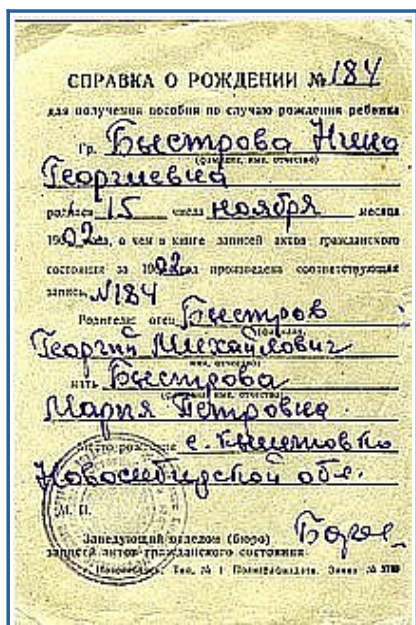 СПРАВКА О РОЖДЕНИИ № 184
для получения пособия по случаю рождения ребенка
Гр. Быстрова Нина
(фамилия, имя, отчество)
Георгиевна
родился 15 числа ноября месяца
1902 года, о чем в книге записей актов гражданского
состояния за 1902 год произведена соответствующая
запись №184
Родители: отец Быстров
Георгий Михайлович
имя, отчество)
мать Быстрова
(фамилия, имя, отчество)
Мария Петровна
Место рождения с.
Новосибирской обл.
М. П.
Заведующий отделом (бюро)
записей актов гражданского состояния
Тип. № 1 Заказ №